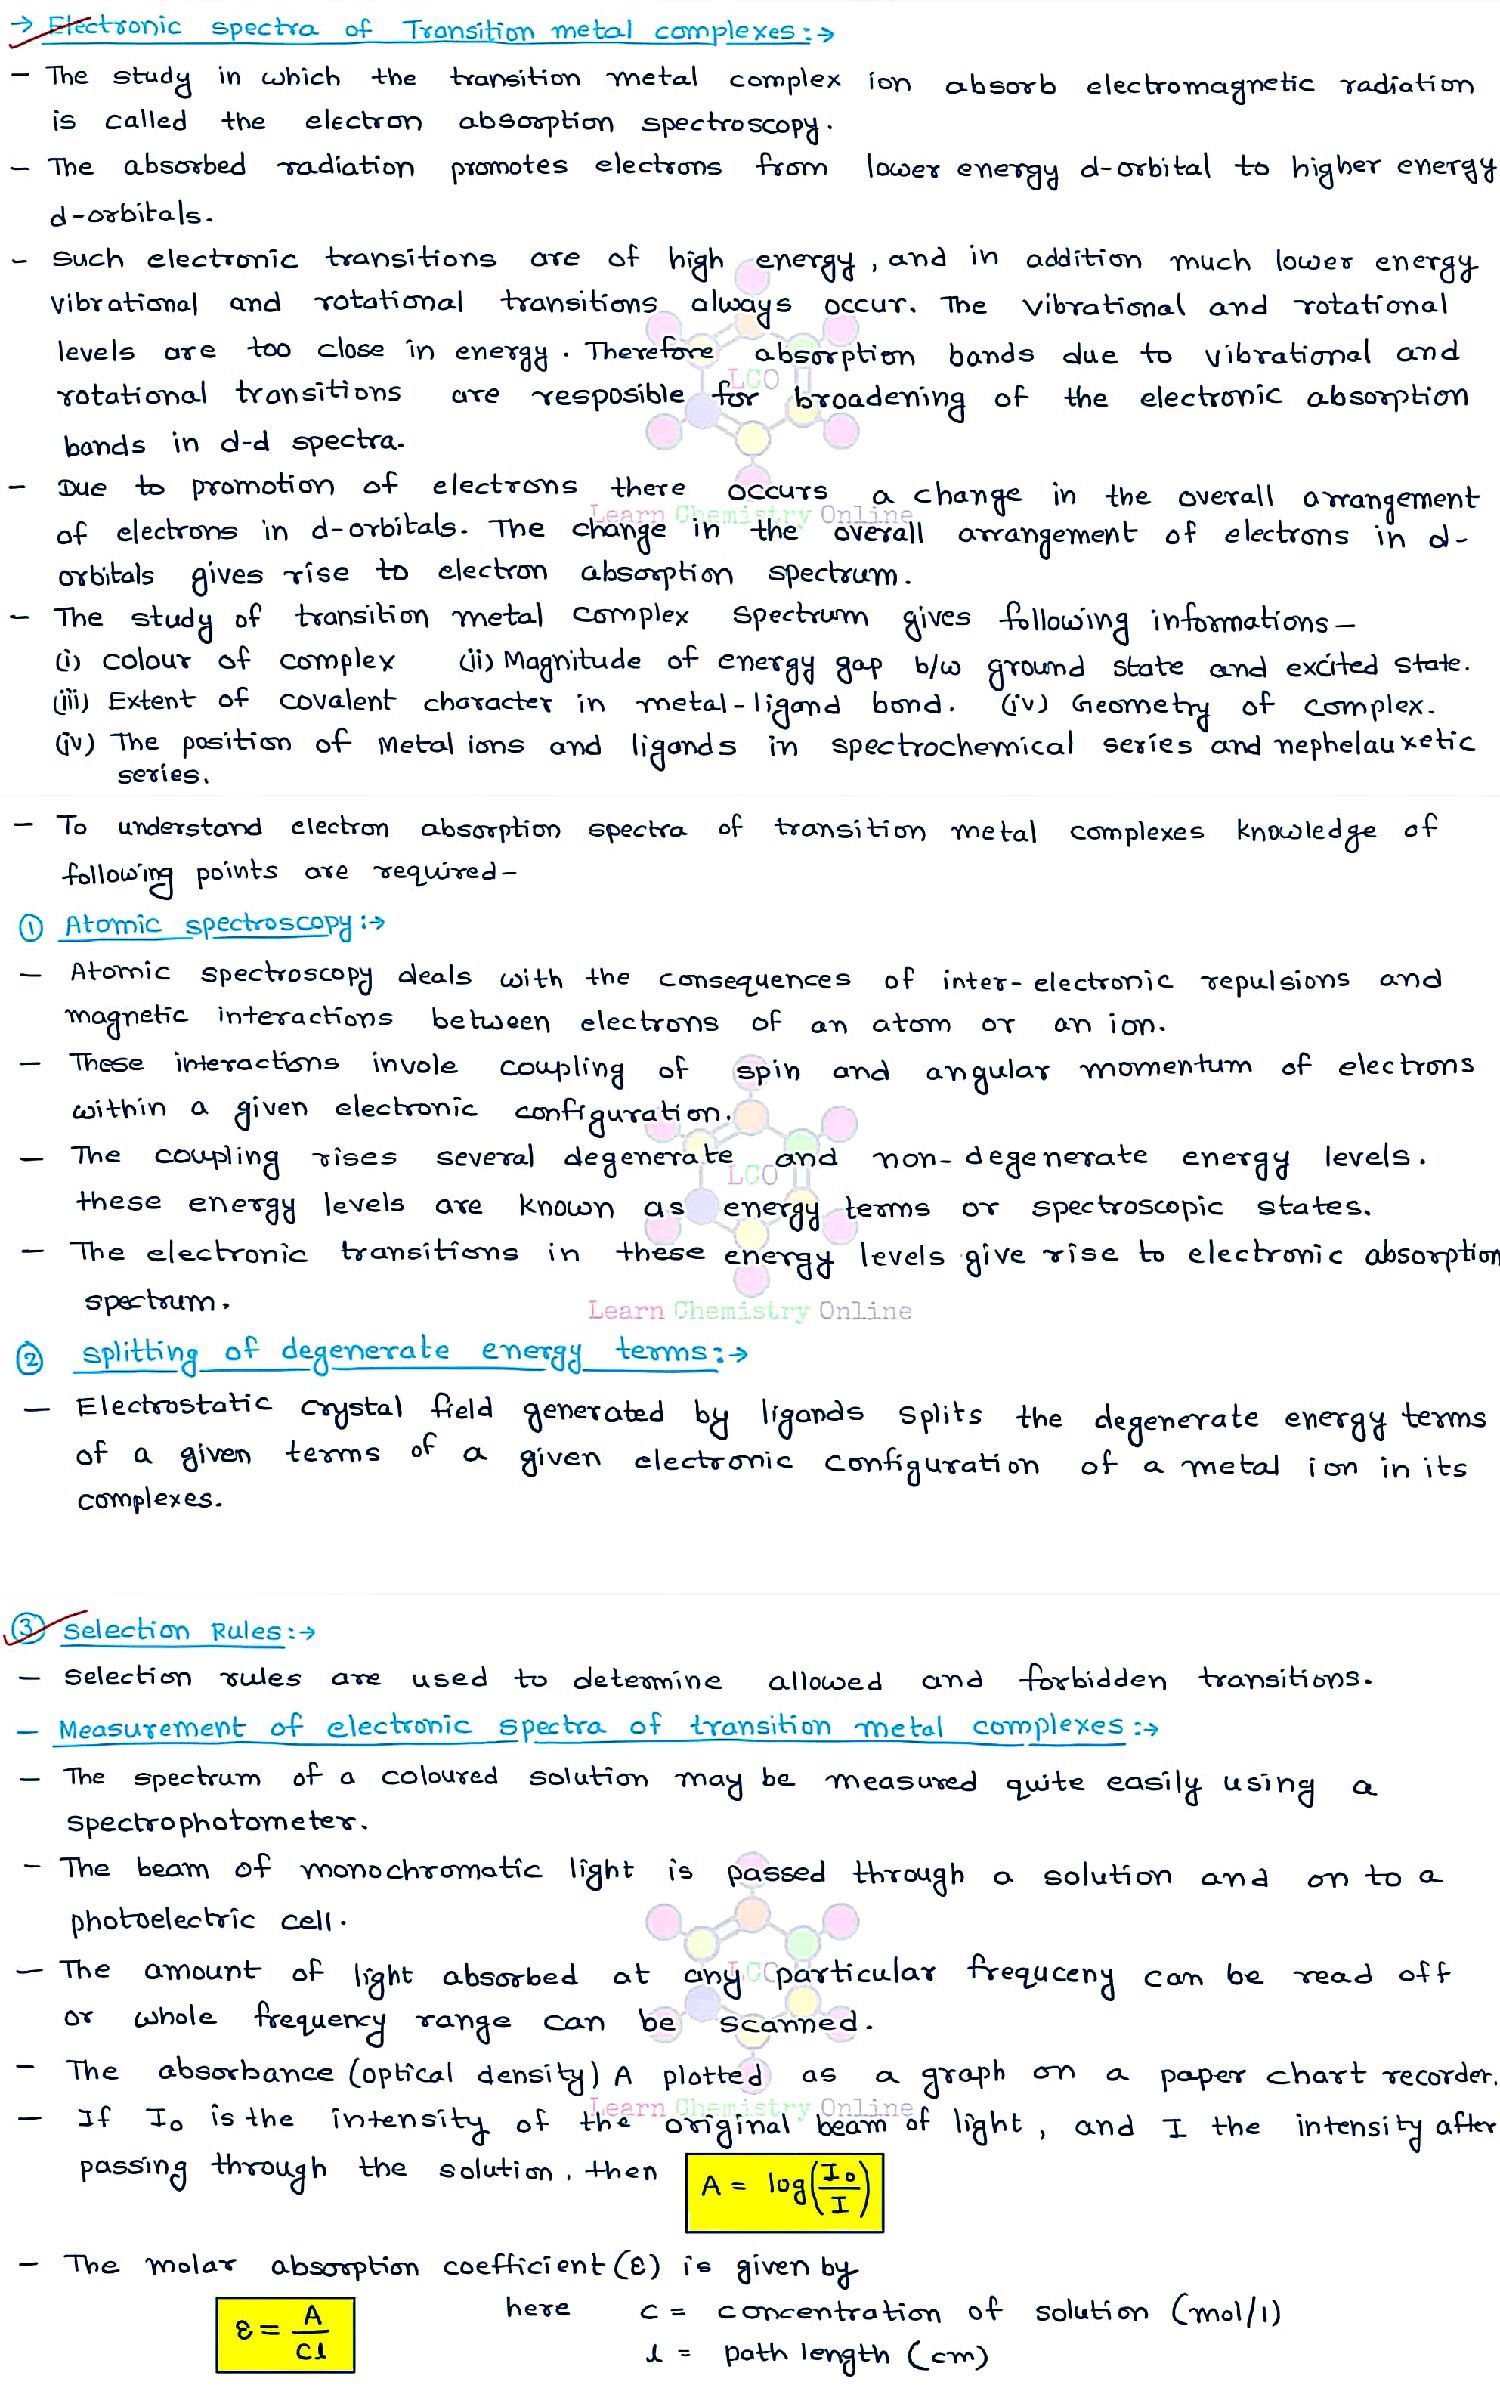 → Electronic spectra of Transition metal complexes:→
- The study in which the transition metal complex ion absorb electromagnetic radiation
is called the electron absorption spectroscopy.
- The absorbed radiation promotes electrons from lower energy d-orbital to higher energy
d-orbitals.
- Such electronic transitions are of high energy, and in addition much lower energy
vibrational and rotational transitions always occur. The vibrational and rotational
levels are too close in energy. Therefore absorption bands due to vibrational and
LCO
rotational transitions are resposible for broadening of the electronic absorption
bands in d-d spectra.
- Due to promotion of electrons there occurs a change in the overall arrangement
Learn Chemistry Online
of electrons in d-orbitals. The change in the overall arrangement of electrons in d-
orbitals gives rise to electron absorption spectrum.
- The study of transition metal complex spectrum gives following informations-
(i) colour of complex (ii) Magnitude of energy gap b/w ground state and excited state.
(iii) Extent of covalent character in metal-ligand bond. (iv) Geometry of complex.
(iv) The position of Metal ions and ligands in spectrochemical series and nephelauxetic
series.
- To understand electron absorption spectra of transition metal complexes knowledge of
following points are required-
① Atomic spectroscopy:→
- Atomic spectroscopy deals with the consequences of inter-electronic repulsions and
magnetic interactions between electrons of an atom or an ion.
- These interactions invole coupling of spin and angular momentum of electrons
within a given electronic configuration.
- The coupling rises several degenerate and non-degenerate energy levels.
LCO
these energy levels are known as energy terms or spectroscopic states.
- The electronic transitions in these energy levels give rise to electronic absorption
spectrum.
Learn Chemistry Online
② splitting of degenerate energy terms:→
- Electrostatic crystal field generated by ligands splits the degenerate energy terms
of a given terms of a given electronic configuration of a metal ion in its
complexes.
③ Selection Rules:→
- Selection rules are used to determine allowed and forbidden transitions.
- Measurement of electronic spectra of transition metal complexes:→
- The spectrum of a coloured solution may be measured quite easily using a
spectrophotometer.
- The beam of monochromatic light is passed through a solution and on to a
photoelectric cell.
- The amount of light absorbed at any particular frequceny can be read off
LCO
or whole frequency range can be scanned.
- The absorbance (optical density) A plotted as a graph on a paper chart recorder.
Learn Chemistry Online
- If I₀ is the intensity of the original beam of light, and I the intensity after
passing through the solution, then A = log(I₀/I)
- The molar absorption coefficient (ε) is given by
ε = A/cl here c = concentration of solution (mol/l)
l = path length (cm)